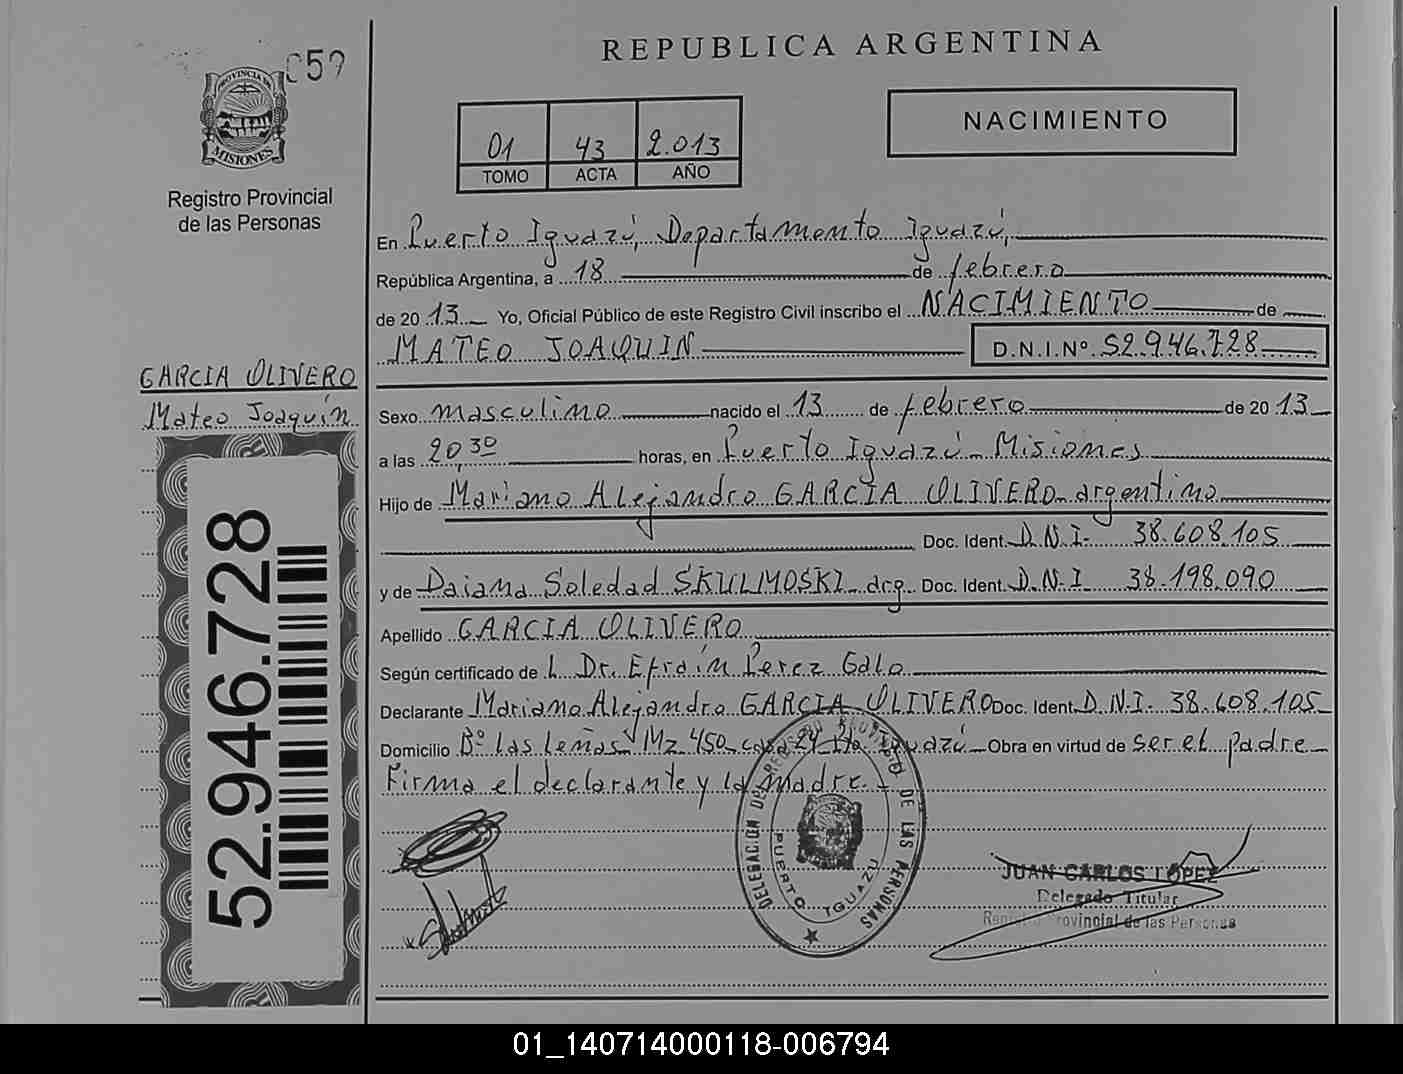 REPUBLICA ARGENTINA
PROVINCIA DE
MISIONES
Registro Provincial
de las Personas
01 43 2.013
TOMO ACTA AÑO
NACIMIENTO
En Puerto Iguazú, Departamento Iguazú,
República Argentina, a 18 de febrero
de 2013 Yo, Oficial Público de este Registro Civil inscribo el NACIMIENTO de
MATEO JOAQUIN D.N.I.Nº 52.946.728
GARCIA OLIVERO
Mateo Joaquín
52.946.728
Sexo masculino nacido el 13 de febrero de 2013
a las 20,30 horas, en Puerto Iguazú - Misiones
Hijo de Mariano Alejandro GARCIA OLIVERO - argentino
Doc. Ident. D.N.I. 38.608.105
y de Daiana Soledad SKULMOSKI - arg. Doc. Ident. D.N.I 38.198.090
Apellido GARCIA OLIVERO
Según certificado de L Dr. Efraín Perez Galo
Declarante Mariano Alejandro GARCIA OLIVERO Doc. Ident. D.N.I. 38.608.105
Domicilio Bº las leñas Mz 450 casa 24 Pto Iguazú - Obra en virtud de ser el padre
Firma el declarante y la madre. -
DELEGACION DEL REGISTRO DE LAS PERSONAS
PUERTO IGUAZU
JUAN CARLOS LOPEZ
Delegado Titular
Registro Provincial de las Personas
01_140714000118-006794